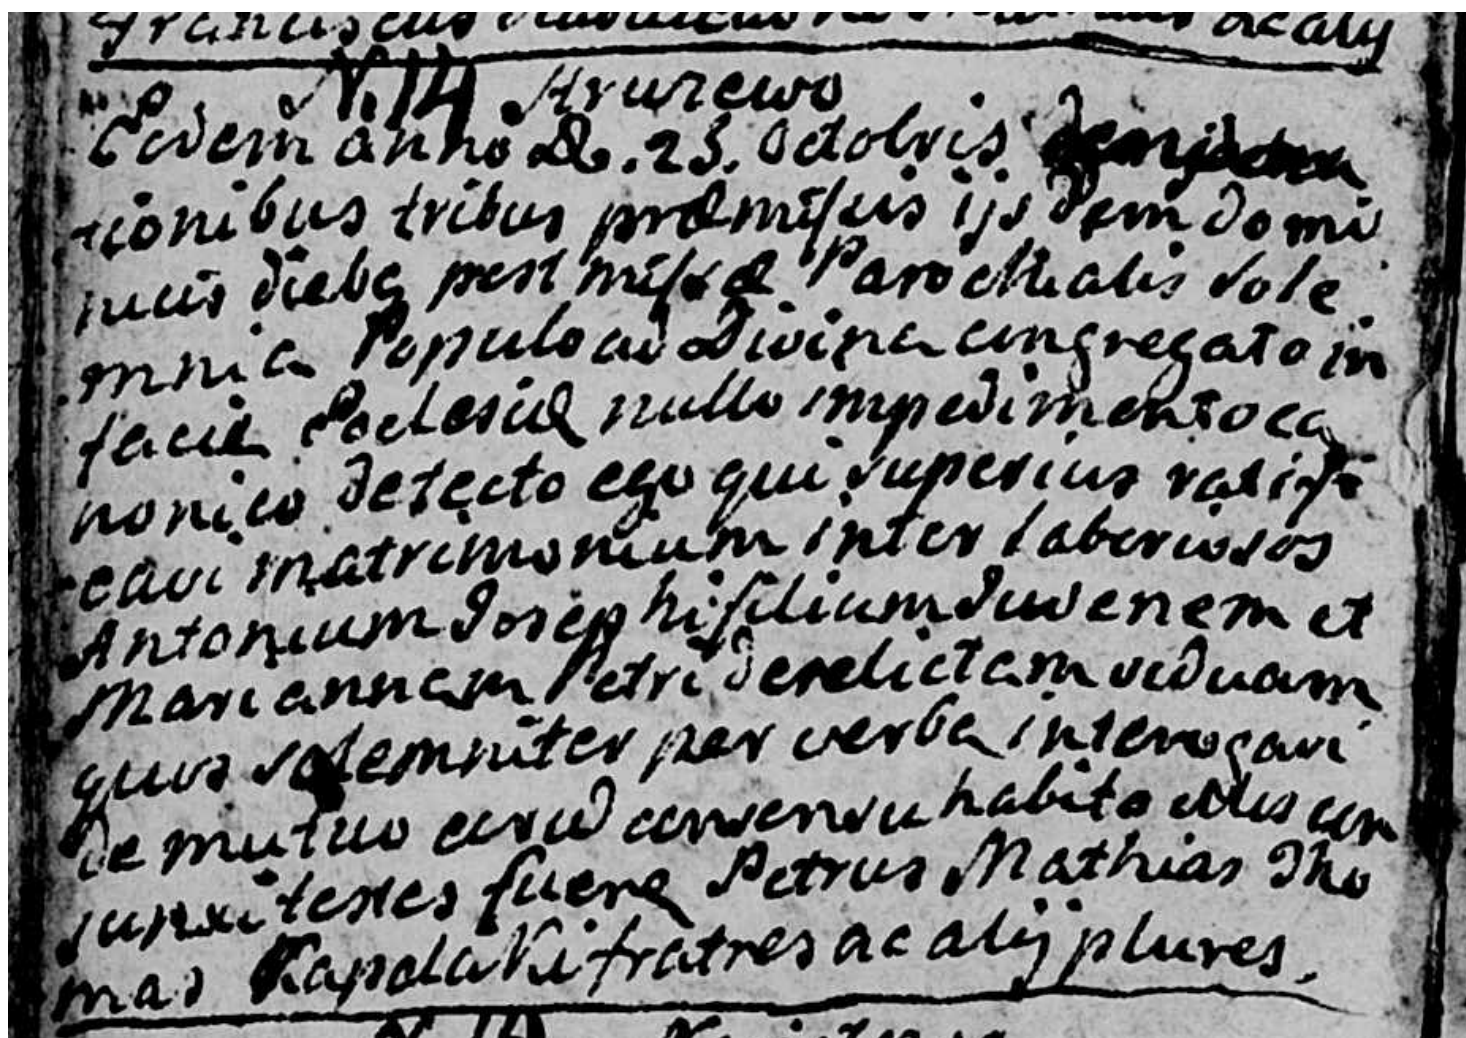 Franciscus ac alij
N. 14 Hruzewo
Eodem anno D. 23. Octobris
tionibus tribus præmissis ijsdem domi
nicis diebq post missæ Parochialis sole
mnia Populo ad Divina congregato in
facie Ecclesiæ nullo impedimento ca
nonico detecto ego qui superius ratifi
cavi matrimonium inter laboriosos
Antonium Josephi filium Juvenem et
Mariannam Petri derelictam viduam
quos solemniter per verba interrogavi
De mutuo eorud consensu habito illos con
junxi testes fuere Petrus Mathias Tho
mas fratres ac alij plures.